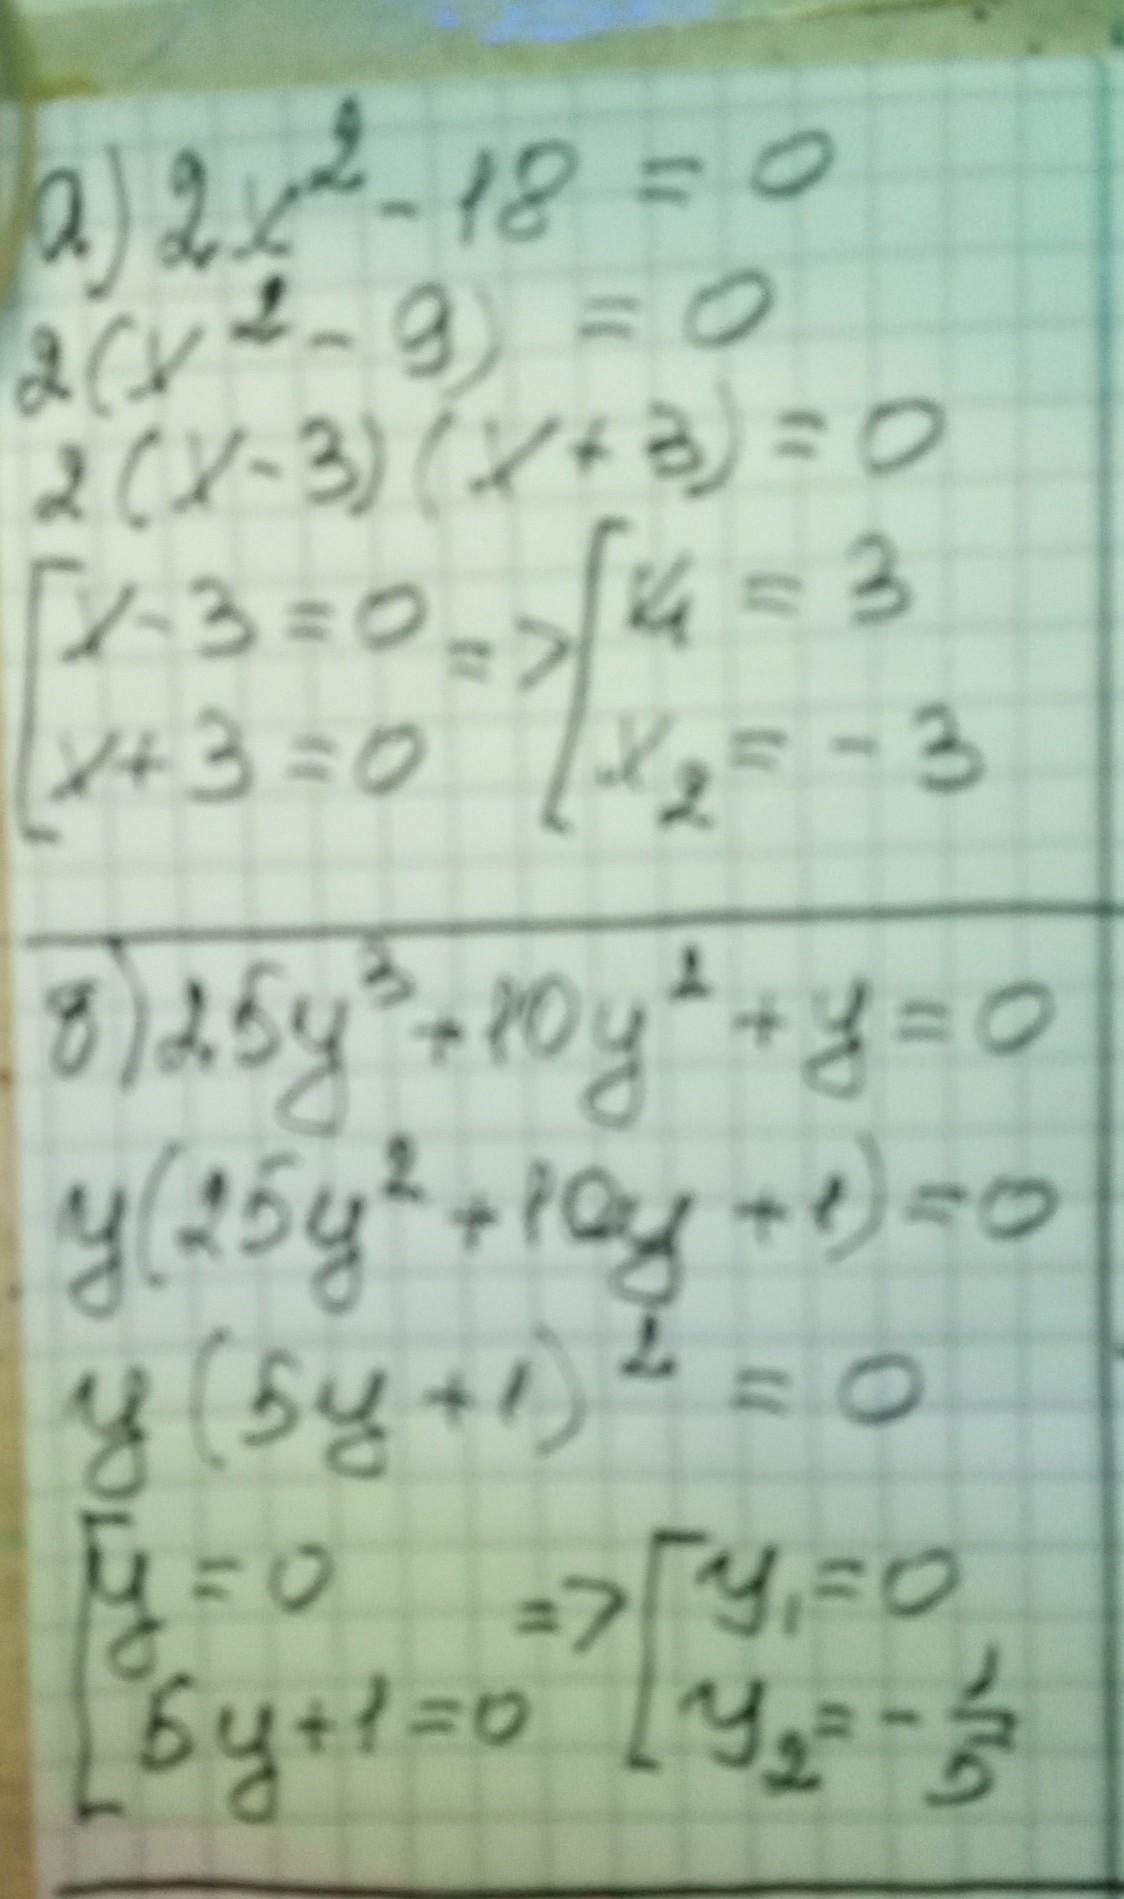 а) 2x² - 18 = 0
2(x² - 9) = 0
2(x - 3)(x + 3) = 0
[x - 3 = 0 => [x₁ = 3
x + 3 = 0 x₂ = -3
в) 25y³ + 10y² + y = 0
y(25y² + 10y + 1) = 0
y(5y + 1)² = 0
[y = 0 => [y₁ = 0
5y + 1 = 0 y₂ = -1/5